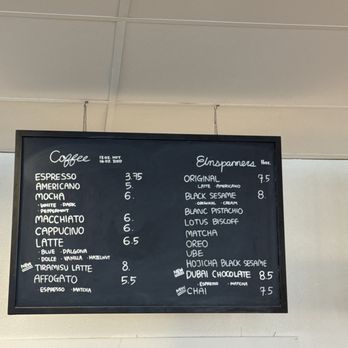 Coffee
12 oz. HOT
16 oz. ICED
ESPRESSO 3.75
AMERICANO 5.
MOCHA 6.
· WHITE · DARK
· PEPPERMINT
MACCHIATO 6.
CAPPUCINO 6.
LATTE 6.5
· BLUE · DALGONA
· DOLCE · VANILLA · HAZELNUT
NEW TIRAMISU LATTE 8.
AFFOGATO 5.5
ESPRESSO · MATCHA
EInspanners 11oz.
ORIGINAL 7.5
LATTE · AMERICANO
BLACK SESAME 8.
ORIGINAL · CREAM
BLANC PISTACHIO
LOTUS BISCOFF
MATCHA
OREO
UBE
HOJICHA BLACK SESAME
NEW DUBAI CHOCOLATE 8.5
· ESPRESSO · MATCHA
NEW CHAI 7.5